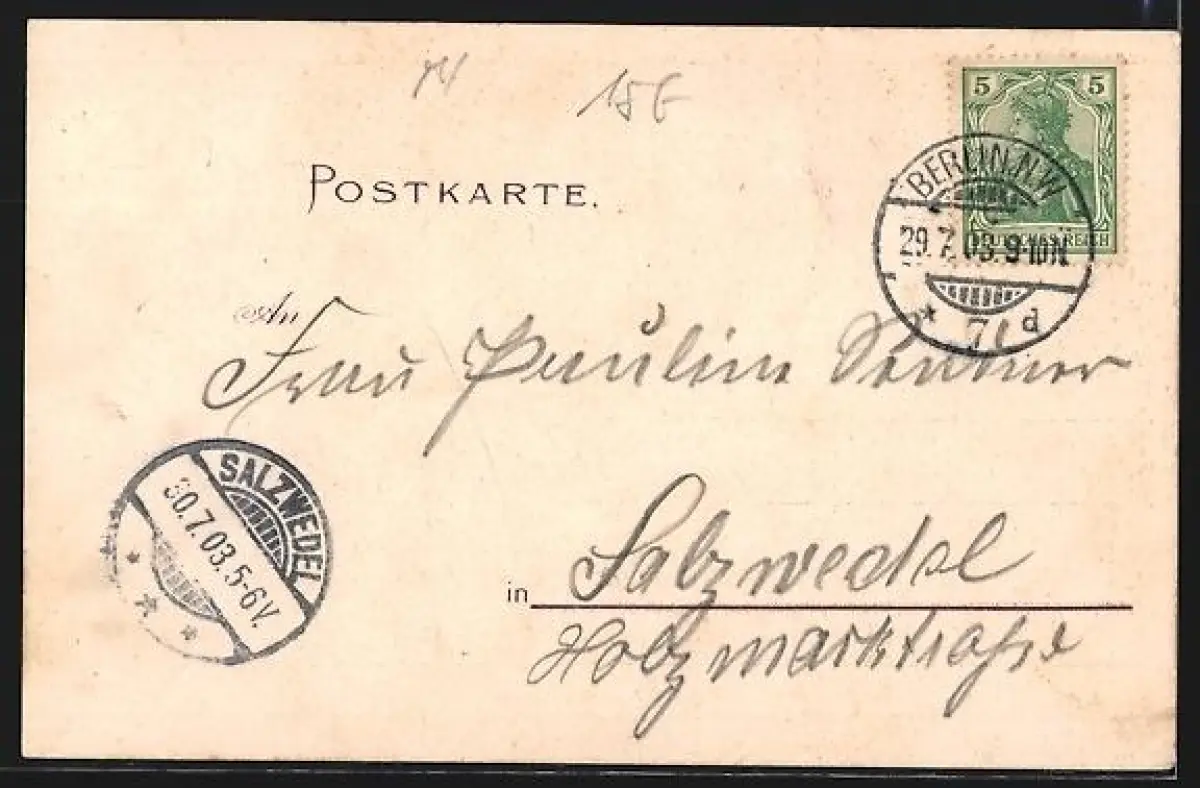 5 5
DEUTSCHES REICH
BERLIN.N.W.
29.7.03.9-10N.
* 7 d
POSTKARTE.
An
Frau Pauline
SALZWEDEL
30.7.03.5-6V.
in Salzwedel
Holzmarktstraße